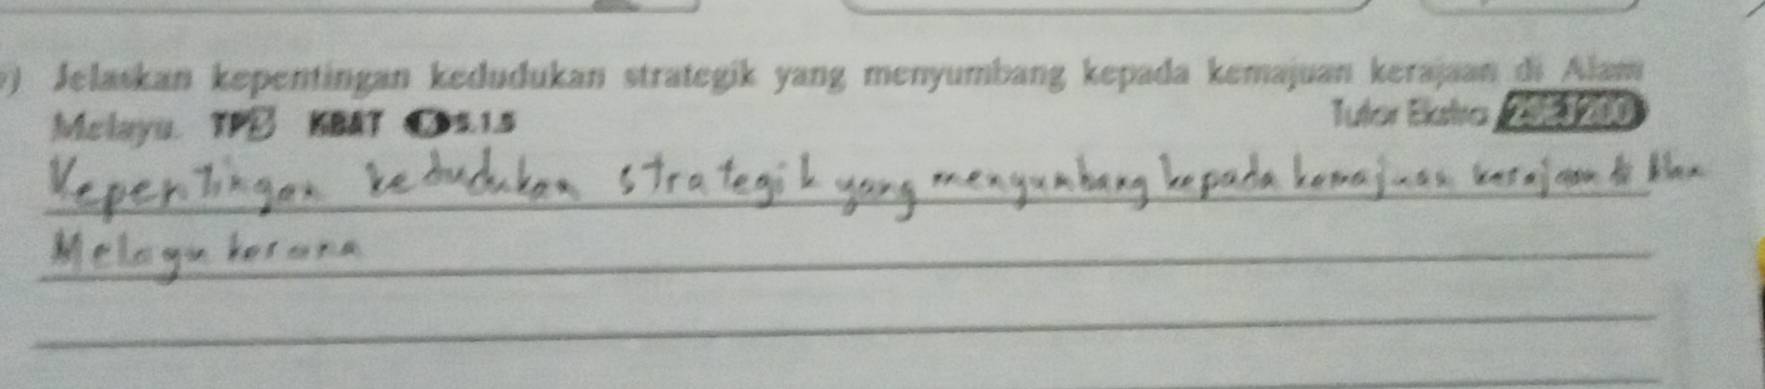 ) Jelaskan kepentingan kedudukan strategik yang menyumbang kepada kemajuan kerajaan di Alam
Melayu. TP5 KBAT 5.1.5 Tutor Ekstra
Kepentingan kedudukan strategik yang menyumbang kepada kemajuan kerajaan di Alam
Melayu kerana